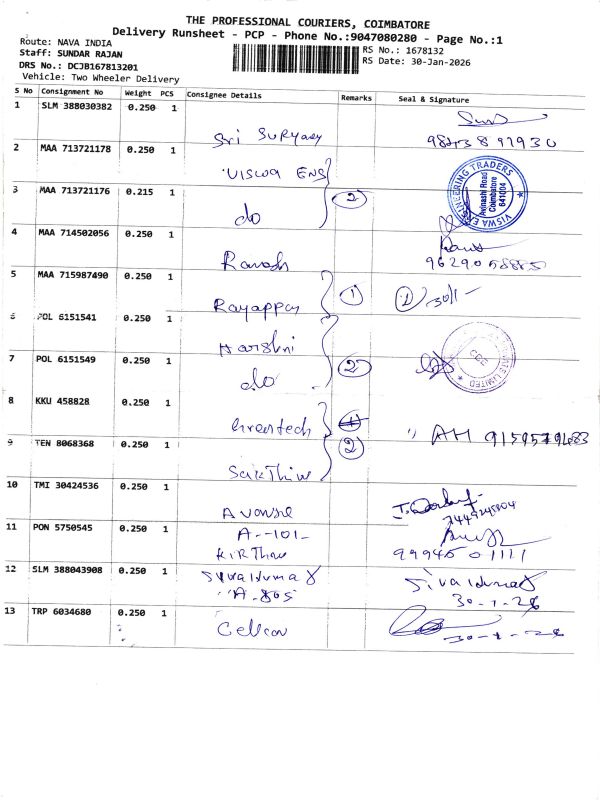 THE PROFESSIONAL COURIERS, COIMBATORE
Delivery Runsheet - PCP - Phone No.:9047080280 - Page No.:1
Route: NAVA INDIA
Staff: SUNDAR RAJAN
DRS No.: DCJB167813201
Vehicle: Two Wheeler Delivery
RS No.: 1678132
RS Date: 30-Jan-2026
S No Consignment No Weight PCS Consignee Details Remarks Seal & Signature
1 SLM 388030382 0.250 1
Sri Suryaa
2 MAA 713721178 0.250 1
VISWA ENG
VISWA ENGINEERING TRADERS
Avinashi Road
Coimbatore
641004
3 MAA 713721176 0.215 1
do 2
4 MAA 714502056 0.250 1
Ramesh
5 MAA 715987490 0.250 1
Rayappas 1 1 30/1
6 POL 6151541 0.250 1
Harshni
7 POL 6151549 0.250 1
do 2
LIMITED
CBE
8 KKU 458828 0.250 1
Greentech
9 TEN 8068368 0.250 1
2
Sakthi
10 TMI 30424536 0.250 1
11 PON 5750545 0.250 1
A--101-
99945 01111
12 SLM 388043908 0.250 1
Sivakumar Sivakumar
A-805 30-1-26
13 TRP 6034680 0.250 1
Cellcon 30-1-26